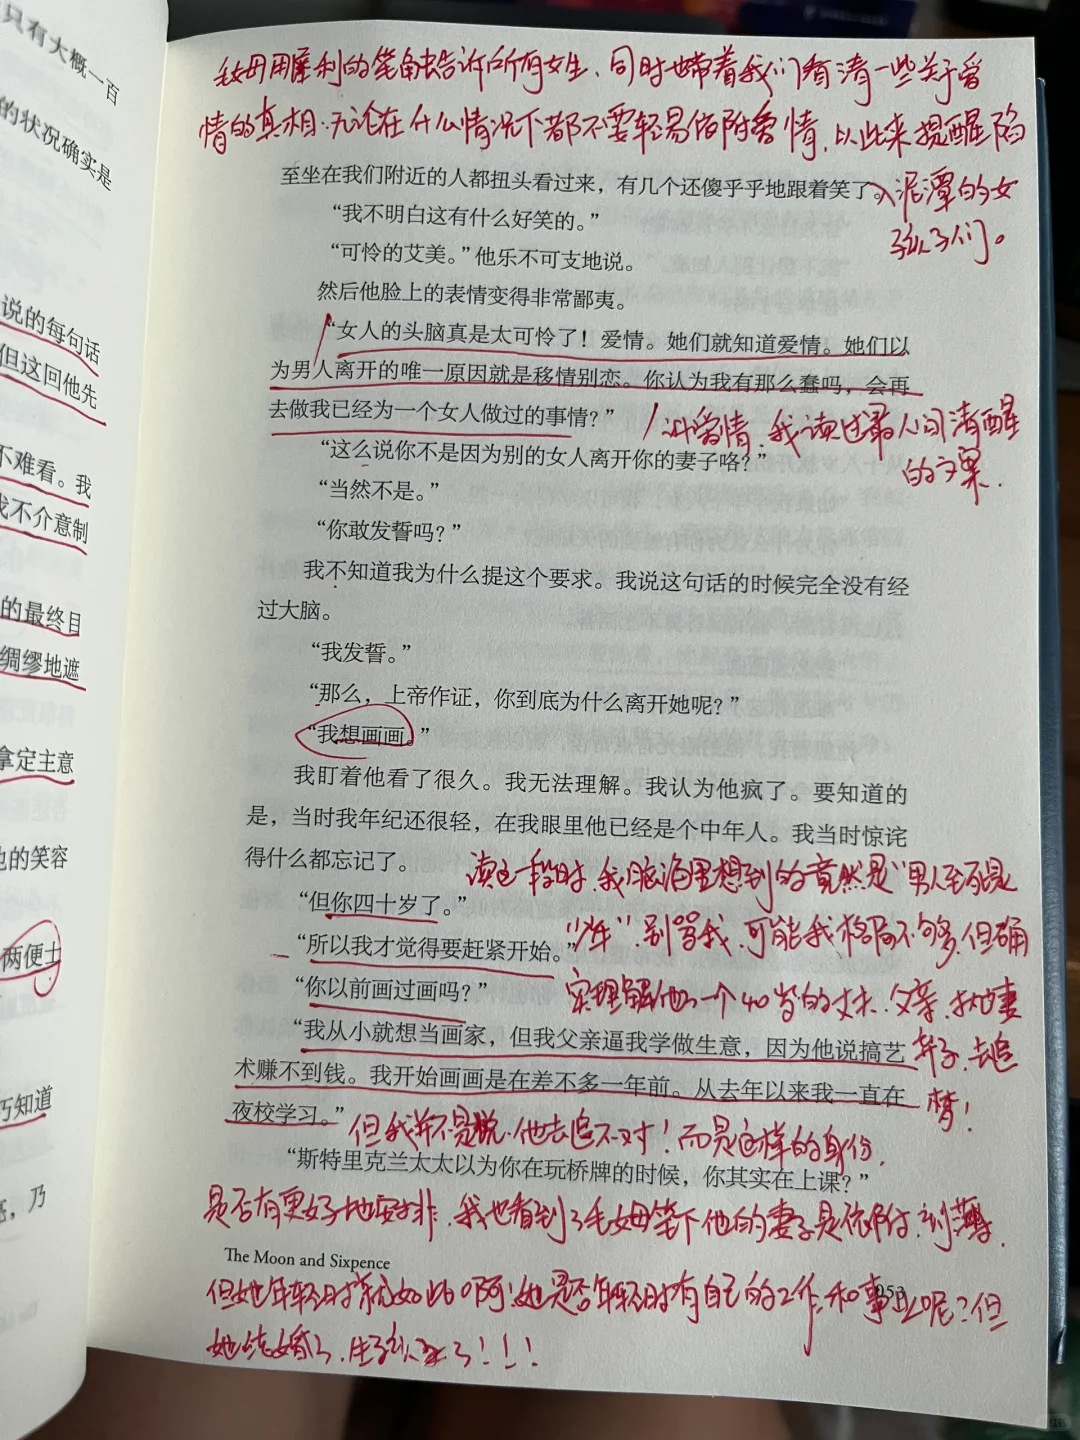 只有大概一百
的状况确实是
说的每句话
但这回他先
不难看。我
我不介意制
的最终目
绸缪地遮
拿定主意
他的笑容
两便士
巧知道
亮，乃
毛姆用犀利的笔触告诉所有女生，同时也带着我们看清一些关于爱
情的真相.无论在什么情况下都不要轻易依附爱情，以此来提醒陷
入泥潭的女
孩子们。
至坐在我们附近的人都扭头看过来，有几个还傻乎乎地跟着笑了。
“我不明白这有什么好笑的。”
“可怜的艾美。”他乐不可支地说。
然后他脸上的表情变得非常鄙夷。
“女人的头脑真是太可怜了！爱情。她们就知道爱情。她们以
为男人离开的唯一原因就是移情别恋。你认为我有那么蠢吗，会再
去做我已经为一个女人做过的事情？”
讲爱情，我读过最人间清醒
的文案.
“这么说你不是因为别的女人离开你的妻子咯？”
“当然不是。”
“你敢发誓吗？”
我不知道我为什么提这个要求。我说这句话的时候完全没有经
过大脑。
“我发誓。”
“那么，上帝作证，你到底为什么离开她呢？”
“我想画画。”
我盯着他看了很久。我无法理解。我认为他疯了。要知道的
是，当时我年纪还很轻，在我眼里他已经是个中年人。我当时惊诧
得什么都忘记了。
读这一段时，我脑海里想到的竟然是“男人至死是
少年”别骂我，可能我格局不够，但确
实理解他，一个40岁的丈夫.父亲，抛妻
弃子，去追
梦！
“但你四十岁了。”
“所以我才觉得要赶紧开始。”
“你以前画过画吗？”
“我从小就想当画家，但我父亲逼我学做生意，因为他说搞艺
术赚不到钱。我开始画画是在差不多一年前。从去年以来我一直在
夜校学习。”
但我并不是说.他去追不对！而是这样的身份，
“斯特里克兰太太以为你在玩桥牌的时候，你其实在上课？”
是否有更好地安排，我也看到了毛姆笔下他的妻子是依附，刻薄.
The Moon and Sixpence
053
但她年轻时就如此吗啊！她是否年轻时有自己的工作，和事业呢？但
她结婚了，生孩子了！！！